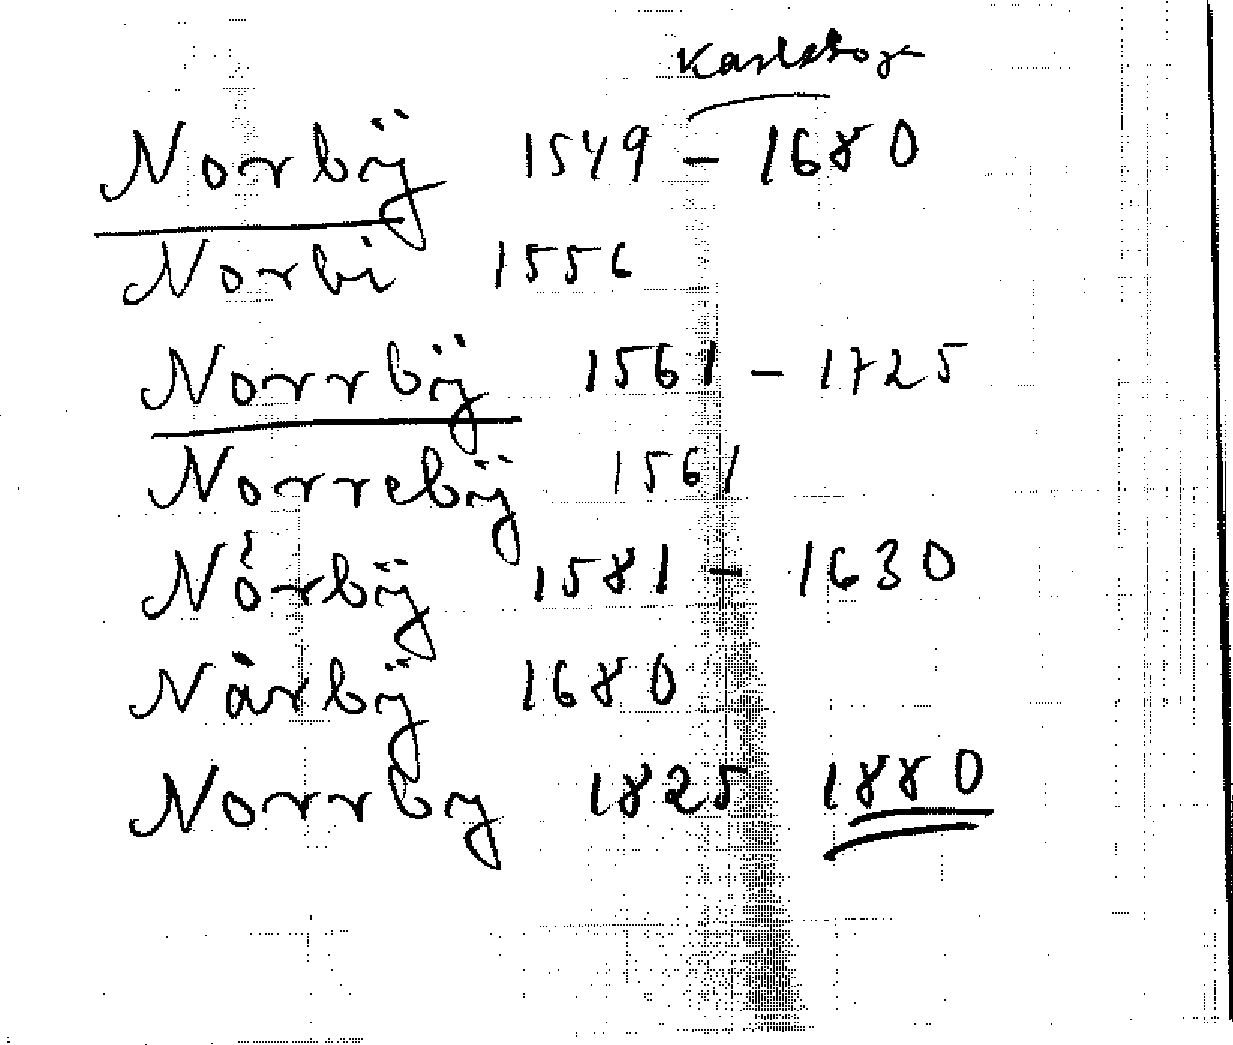 Norbÿ 1549 – 1680
Norbi 1556
Norrbÿ 1561 – 1725
Norrebÿ 1561
Nórbÿ 1581 – 1630
Nårbÿ 1680
Norrby 1825 1880